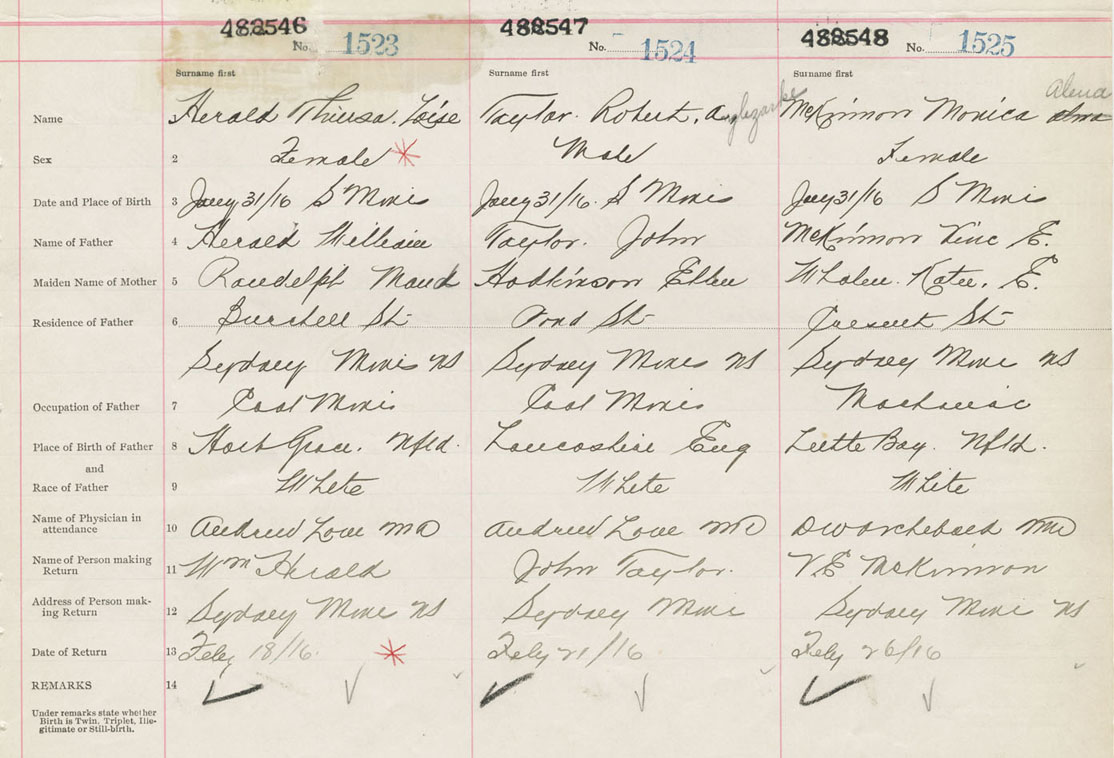 482546 488547 488548
No. 1523 No. 1524 No. 1525
Surname first Surname first Surname first
Alena
Name Herald Thirusa. Loise Taylor. Robert. Anglezarke McKinnon Monica alma
Sex 2 Female * Male Female
Date and Place of Birth 3 Jany 31/16 S Mines Jany 31/16. S Mines Jany 31/16 S Mines
Name of Father 4 Herald William Taylor. John McKinnon E.
Maiden Name of Mother 5 Randelph Maud Hodkinson Ellen Whalen. Katie. E.
Residence of Father 6 Burchell St Pond St St
Sydney Mines NS Sydney Mines NS Sydney Mines NS
Occupation of Father 7 Coal Mines Coal Mines
Place of Birth of Father 8 Harb Grace. Nfld. Lancashire Eng Little Bay. Nfld.
and
Race of Father 9 White White White
Name of Physician in
attendance 10 Andrew Love MD Andrew Love MD DW Archibald MD
Name of Person making
Return 11 Wm Herald John Taylor. V.E McKinnon
Address of Person mak-
ing Return 12 Sydney Mines NS Sydney Mines Sydney Mines NS
Date of Return 13 Feby 18/16. * Feby 21/16 Feby 26/16
REMARKS 14
Under remarks state whether
Birth is Twin, Triplet, Ille-
gitimate or Still-birth.